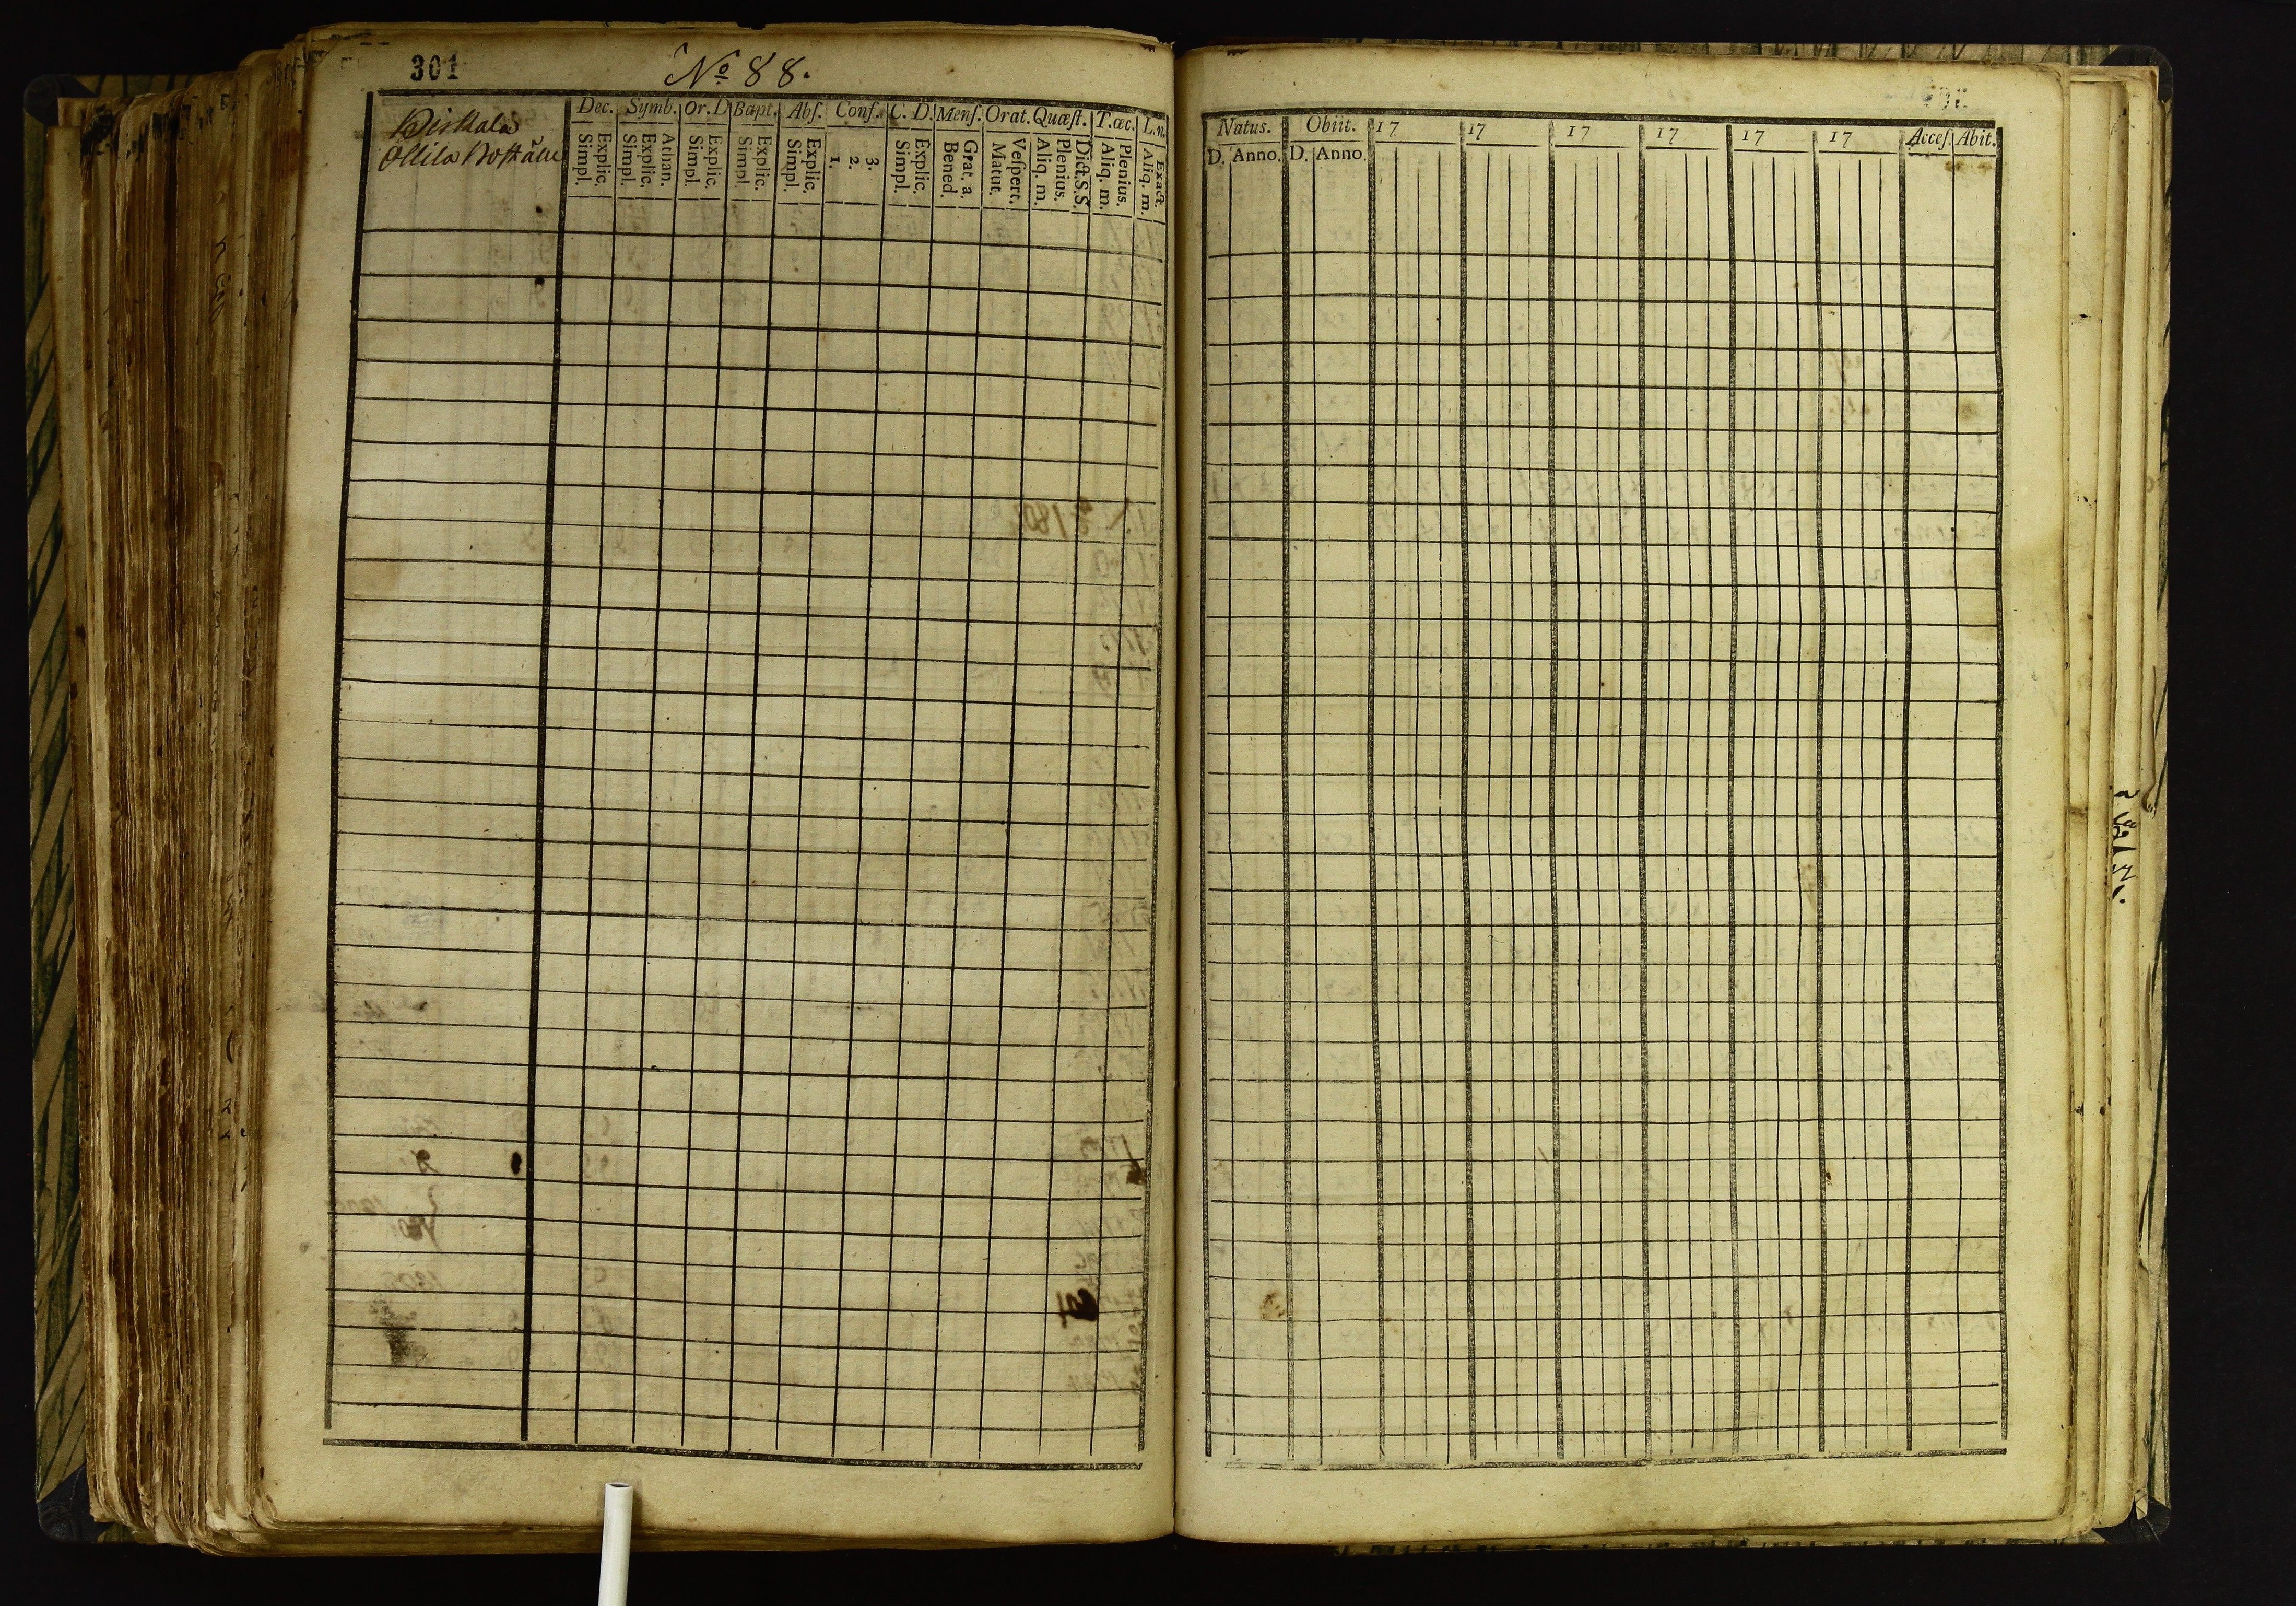 301
No 88.
Pirkala
Ollila Boställe
Dec. Symb. Or. D Bapt. Abſ. Conf. C. D. Menſ. Orat. Quæſt. T. œc. L. n.
Explic. Simpl. Athan. Explic. Simpl. Explic. Simpl. Explic. Simpl. Explic. Simpl. 3. 2. 1. Explic. Simpl. Grat. a. Bened. Veſpert. Matut. Dict. S.S. Plenius. Aliq. m. Plenius. Aliq. m. Exact. Aliq. m.
Natus. Obiit. 17 17 17 17 17 17 Acceſ. Abit.
D. Anno. D. Anno.